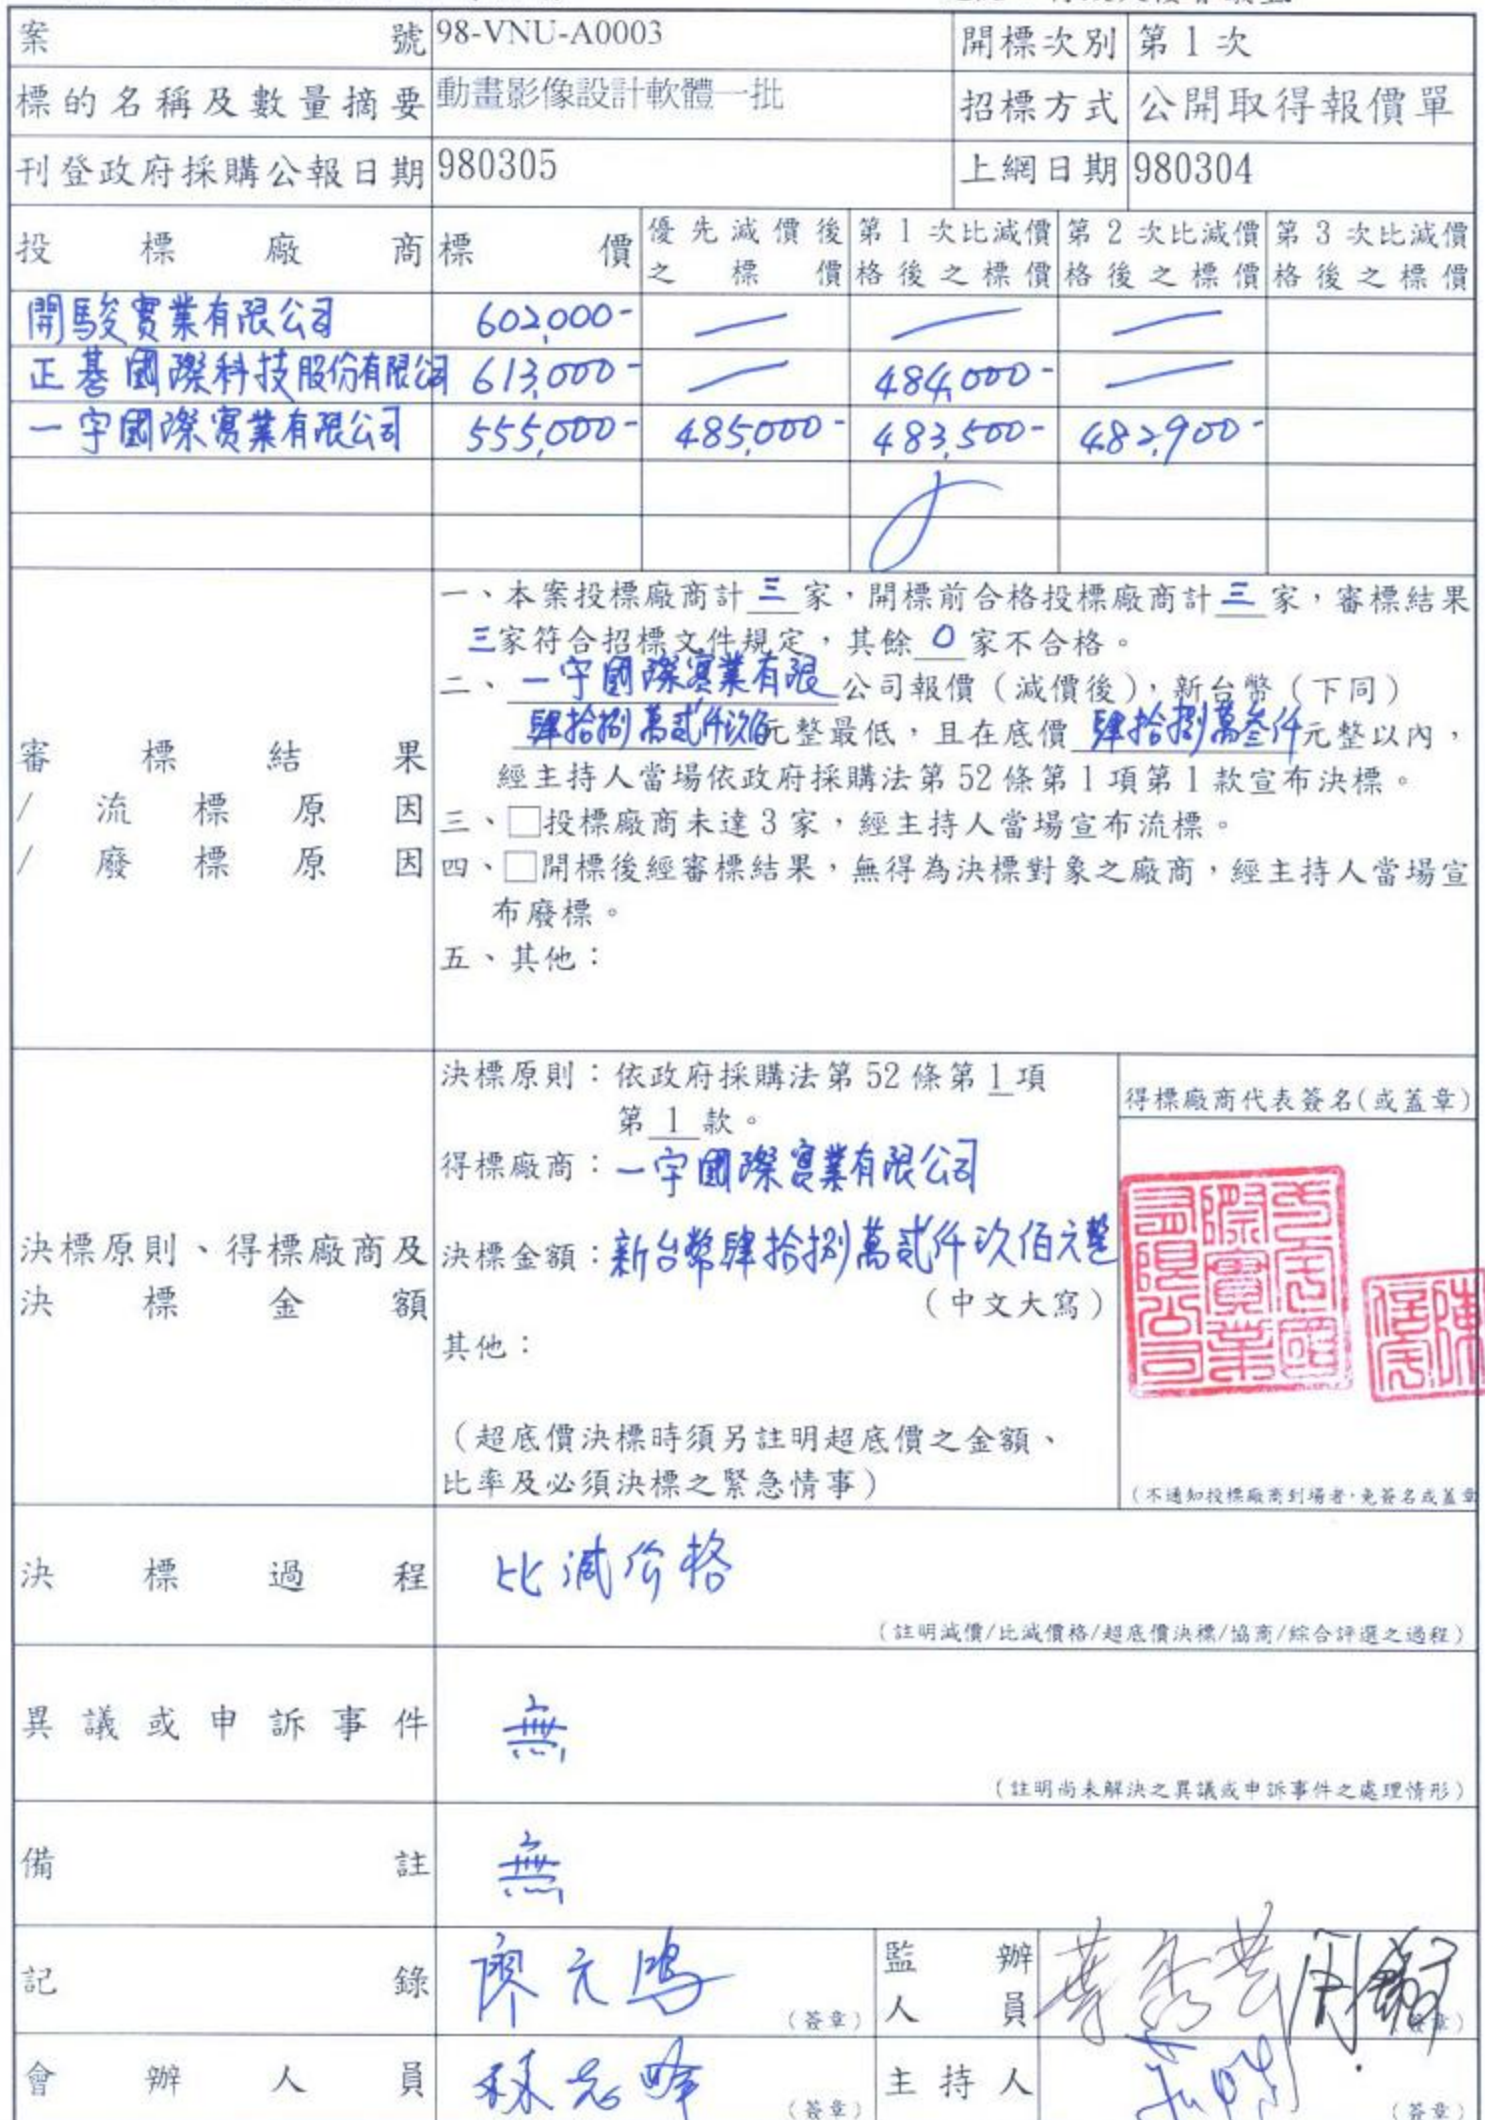 案號 98-VNU-A0003 開標次別 第 1 次
標的名稱及數量摘要 動畫影像設計軟體一批 招標方式 公開取得報價單
刊登政府採購公報日期 980305 上網日期 980304
投標廠商 標價 優先減價後之標價 第 1 次比減價格後之標價 第 2 次比減價格後之標價 第 3 次比減價格後之標價
開駿實業有限公司 602,000- — — —
正基國際科技股份有限公司 613,000- — 484,000- —
一宇國際實業有限公司 555,000- 485,000- 483,500- 482,900-
審標結果
/流標原因
/廢標原因
一、本案投標廠商計 三 家,開標前合格投標廠商計 三 家,審標結果
三家符合招標文件規定,其餘 0 家不合格。
二、一宇國際實業有限 公司報價(減價後),新台幣(下同)
肆拾捌萬貳仟玖佰元整最低,且在底價 肆拾捌萬叁仟元整以內,
經主持人當場依政府採購法第 52 條第 1 項第 1 款宣布決標。
三、□投標廠商未達 3 家,經主持人當場宣布流標。
四、□開標後經審標結果,無得為決標對象之廠商,經主持人當場宣
布廢標。
五、其他:
決標原則、得標廠商及
決標金額
決標原則:依政府採購法第 52 條第 1 項
第 1 款。
得標廠商:一宇國際實業有限公司
決標金額:新台幣肆拾捌萬貳仟玖佰元整
(中文大寫)
其他:
(超底價決標時須另註明超底價之金額、
比率及必須決標之緊急情事)
得標廠商代表簽名(或蓋章)
一宇國際實業有限公司
(不通知投標廠商到場者,免簽名或蓋章
決標過程 比減价格
(註明減價/比減價格/超底價決標/協商/綜合評選之過程)
異議或申訴事件 無
(註明尚未解決之異議或申訴事件之處理情形)
備註 無
記錄 廖元鳴 (簽章) 監辦人員 (簽章)
會辦人員 (簽章) 主持人 (簽章)